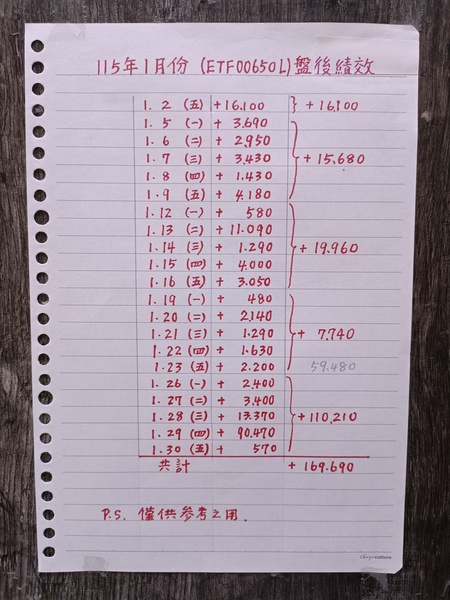 115年1月份 (ETF00650L)盤後績效
1. 2 (五) +16,100 } +16,100
1. 5 (一) + 3.690
1. 6 (二) + 2.950
1. 7 (三) + 3,430 + 15,680
1. 8 (四) + 1.430
1. 9 (五) + 4.180
1.12 (一) + 580
1.13 (二) + 11.090
1.14 (三) + 1.290 + 19.960
1.15 (四) + 4.000
1.16 (五) + 3.050
1.19 (一) + 480
1.20 (二) + 2.140
1.21 (三) + 1.290 + 7.740
1.22 (四) + 1.630
1.23 (五) + 2.200 59.480
1.26 (一) + 2,400
1.27 (二) + 3.400
1.28 (三) + 13.370 + 110,210
1.29 (四) + 90.470
1.30 (五) + 570
共計 + 169.690
P.S. 僅供參考之用.